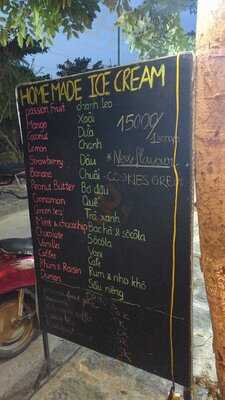 HOME MADE ICE CREAM
passion fruit chanh leo
Mango Xoài
Coconut Dừa
Lemon Chanh
Strawberry Dâu
Banana Chuối
Peanut Butter Bơ đậu
Cinnamon Quế
Green tea Trà xanh
Mint & chocochip Bạc hà & sôcôla
Chocolate Sôcôla
Vanilla Vani
Coffee Cafe
Rum & Raisin Rum & nho khô
Durian Sầu riêng
15000/
* New flavour
COOKIES CREAM